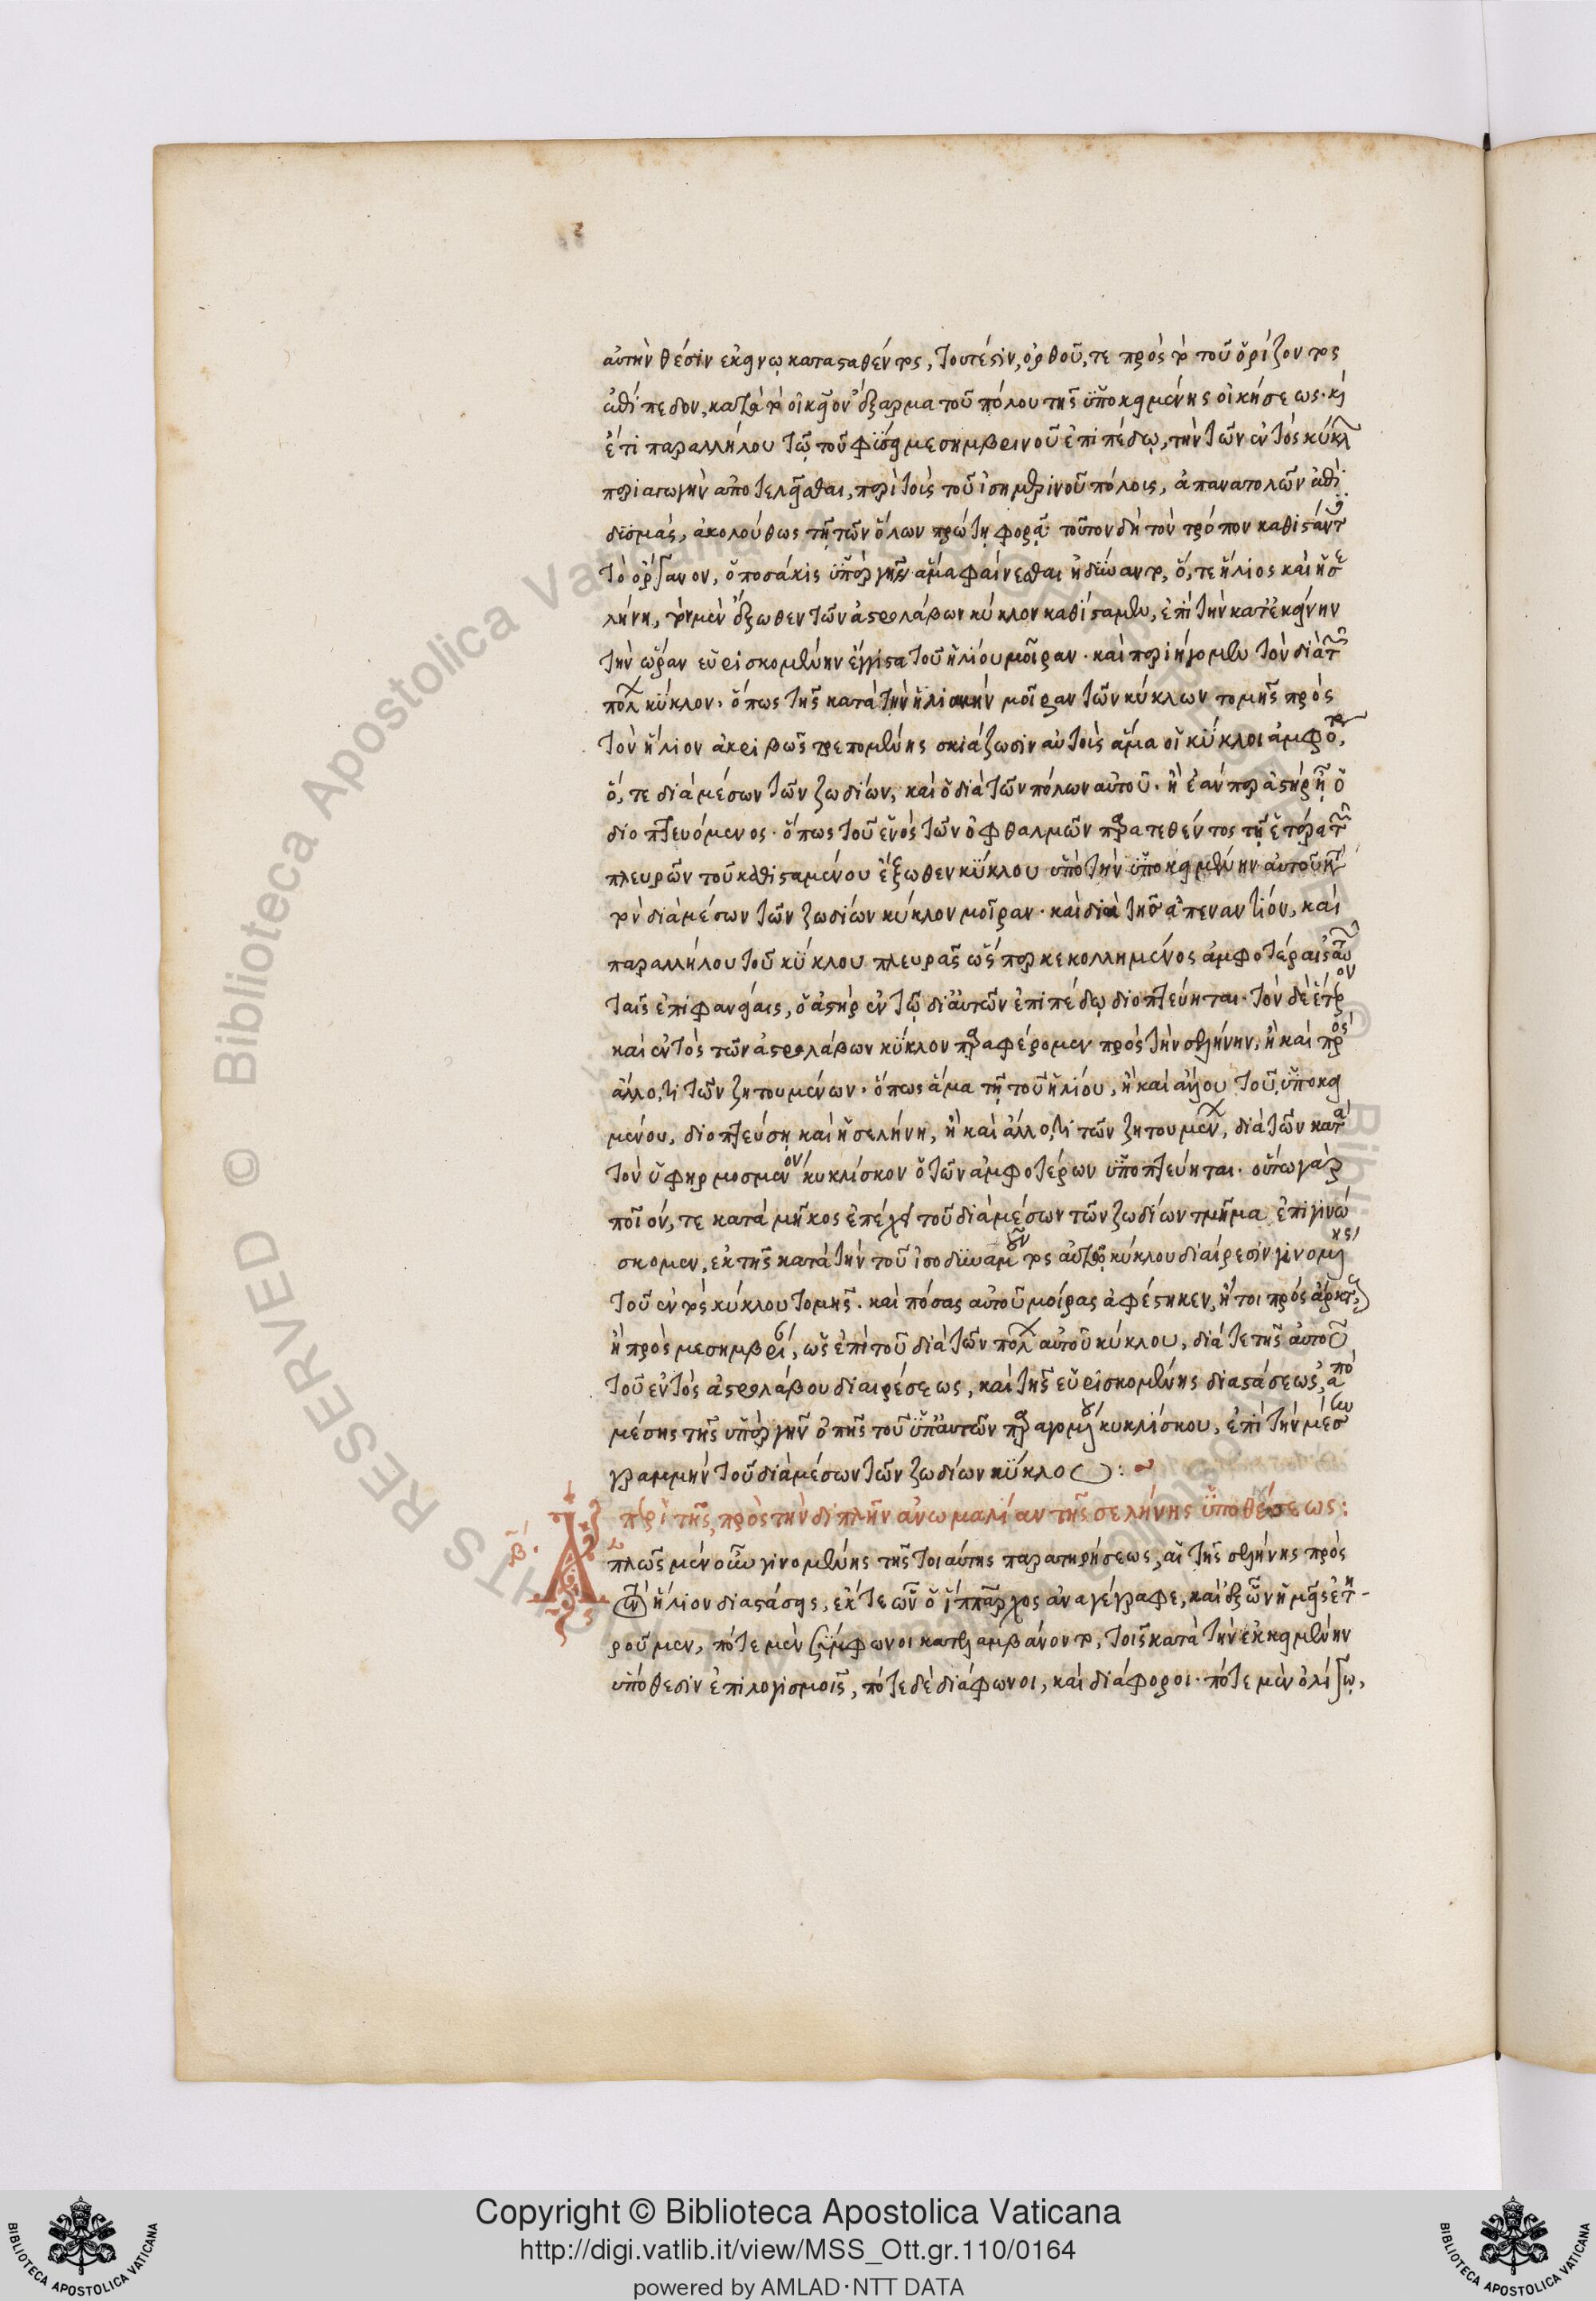 αὐτὴν θέσιν ἐκείνῳ κατασταθέντος, τουτέστιν, ὀρθοῦ, τε πρὸς τὸ τοῦ ὁρίζοντος
ἐπίπεδον, κατὰ τὸ οἰκεῖον ἔξαρμα τοῦ πόλου τῆς ὑποκειμένης οἰκήσεως· καὶ
ἔτι παραλλήλου τῷ τοῦ φύσει μεσημβρινοῦ ἐπιπέδῳ, τὴν τῶν ἐντὸς κύκλων
περιαγωγὴν ἀποτελεῖσθαι, περὶ τοὺς τοῦ ἰσημερινοῦ πόλους, ἀπανατολῶν ἐπὶ
δυσμὰς, ἀκολούθως τῇ τῶν ὅλων πρώτῃ φορᾷ· τοῦτον δὴ τὸν τρόπον καθιστάντες
τὸ ὄργανον, ὁποσάκις ὑπὲρ γῆν ἅμα φαίνεσθαι ἠδύναντο, ὅ, τε ἥλιος καὶ ἡ σε
λήνη, τὸν μὲν ἔξωθεν τῶν ἀστρολάβων κύκλον καθίσταμεν, ἐπὶ τὴν κατ' ἐκείνην
τὴν ὥραν εὑρισκομένην ἔγγιστα τοῦ ἡλίου μοῖραν· καὶ περιήγομεν τὸν διὰ τῶν
πόλων κύκλον· ὅπως τῆς κατὰ τὴν ἡλιακὴν μοῖραν τῶν κύκλων τομῆς πρὸς
τὸν ἥλιον ἀκριβῶς τρεπομένης σκιάζωσιν αὑτοὺς ἅμα οἱ κύκλοι ἀμφότεροι,
ὅ, τε διὰ μέσων τῶν ζωδίων, καὶ ὁ διὰ τῶν πόλων αὐτοῦ· ἢ ἐάν περ ἀστὴρ ᾖ ὁ
διοπτευόμενος· ὅπως τοῦ ἑνὸς τῶν ὀφθαλμῶν παρατεθέντος τῇ ἑτέρᾳ τῶν
πλευρῶν τοῦ καθισταμένου ἔξωθεν κύκλου ὑπὸ τὴν ὑποκειμένην αὐτοῦ κατὰ
τὸν διὰ μέσων τῶν ζωδίων κύκλον μοῖραν· καὶ διὰ τῆς ἀπεναντίον, καὶ
παραλλήλου τοῦ κύκλου πλευρᾶς ὥσπερ κεκολλημένος ἀμφοτέραις αὐτῶν
ταῖς ἐπιφανείαις, ὁ ἀστὴρ ἐν τῷ δι' αὐτῶν ἐπιπέδῳ διοπτεύηται· τὸν δὲ ἕτερον
καὶ ἐντὸς τῶν ἀστρολάβων κύκλον παραφέρομεν πρὸς τὴν σελήνην, ἢ καὶ πρὸς
ἄλλο, τι τῶν ζητουμένων· ὅπως ἅμα τῇ τοῦ ἡλίου, ἢ καὶ ἄλλου τοῦ ὑποκει
μένου, διοπτεύσῃ καὶ ἡ σελήνη, ἢ καὶ ἄλλο, τι τῶν ζητουμένων, διὰ τῶν κατὰ
τὸν ὑφηρμοσμένον κυκλίσκον ὀπῶν ἀμφοτέρων ὑποπτεύηται· οὕτω γὰρ
ποῖόν, τε κατὰ μῆκος ἐπέχει τοῦ διὰ μέσων τῶν ζωδίων τμῆμα ἐπιγινώ
σκομεν, ἐκ τῆς κατὰ τὴν τοῦ ἰσοδυναμοῦντος αὐτῷ κύκλου διαίρεσιν γινομένης
τοῦ ἐντὸς κύκλου τομῆς· καὶ πόσας αὐτοῦ μοίρας ἀφέστηκεν, ἤτοι πρὸς ἄρκτους,
ἢ πρὸς μεσημβρίαν, ὡς ἐπὶ τοῦ διὰ τῶν πόλων αὐτοῦ κύκλου, διά τε τῆς αὐτοῦ
τοῦ ἐντὸς ἀστρολάβου διαιρέσεως, καὶ τῆς εὑρισκομένης διαστάσεως, ἀπὸ
μέσης τῆς ὑπὲρ γῆν ὀπῆς τοῦ ὑπ' αὐτῶν παραγομένου κυκλίσκου, ἐπὶ τὴν μέσην
γραμμὴν τοῦ διὰ μέσων τῶν ζωδίων κύκλου:
περὶ τῆς, πρὸς τὴν διπλῆν ἀνωμαλίαν τῆς σελήνης ὑποθέσεως:
β. Ἁπλῶς μὲν οὖν γινομένης τῆς τοιαύτης παρατηρήσεως, αἱ τῆς σελήνης πρὸς
τὸν ἥλιον διαστάσεις, ἔκ τε ὧν ὁ ἵππαρχος ἀναγέγραφε, καὶ ἐξ ὧν ἡμεῖς ἐτη
ροῦμεν, πότε μὲν σύμφωνοι κατελαμβάνοντο, τοῖς κατὰ τὴν ἐκκειμένην
ὑπόθεσιν ἐπιλογισμοῖς, πότε δὲ διάφωνοι, καὶ διάφοροι· πότε μὲν ὀλίγῳ,
Copyright © Biblioteca Apostolica Vaticana
http://digi.vatlib.it/view/MSS_Ott.gr.110/0164
powered by AMLAD·NTT DATA